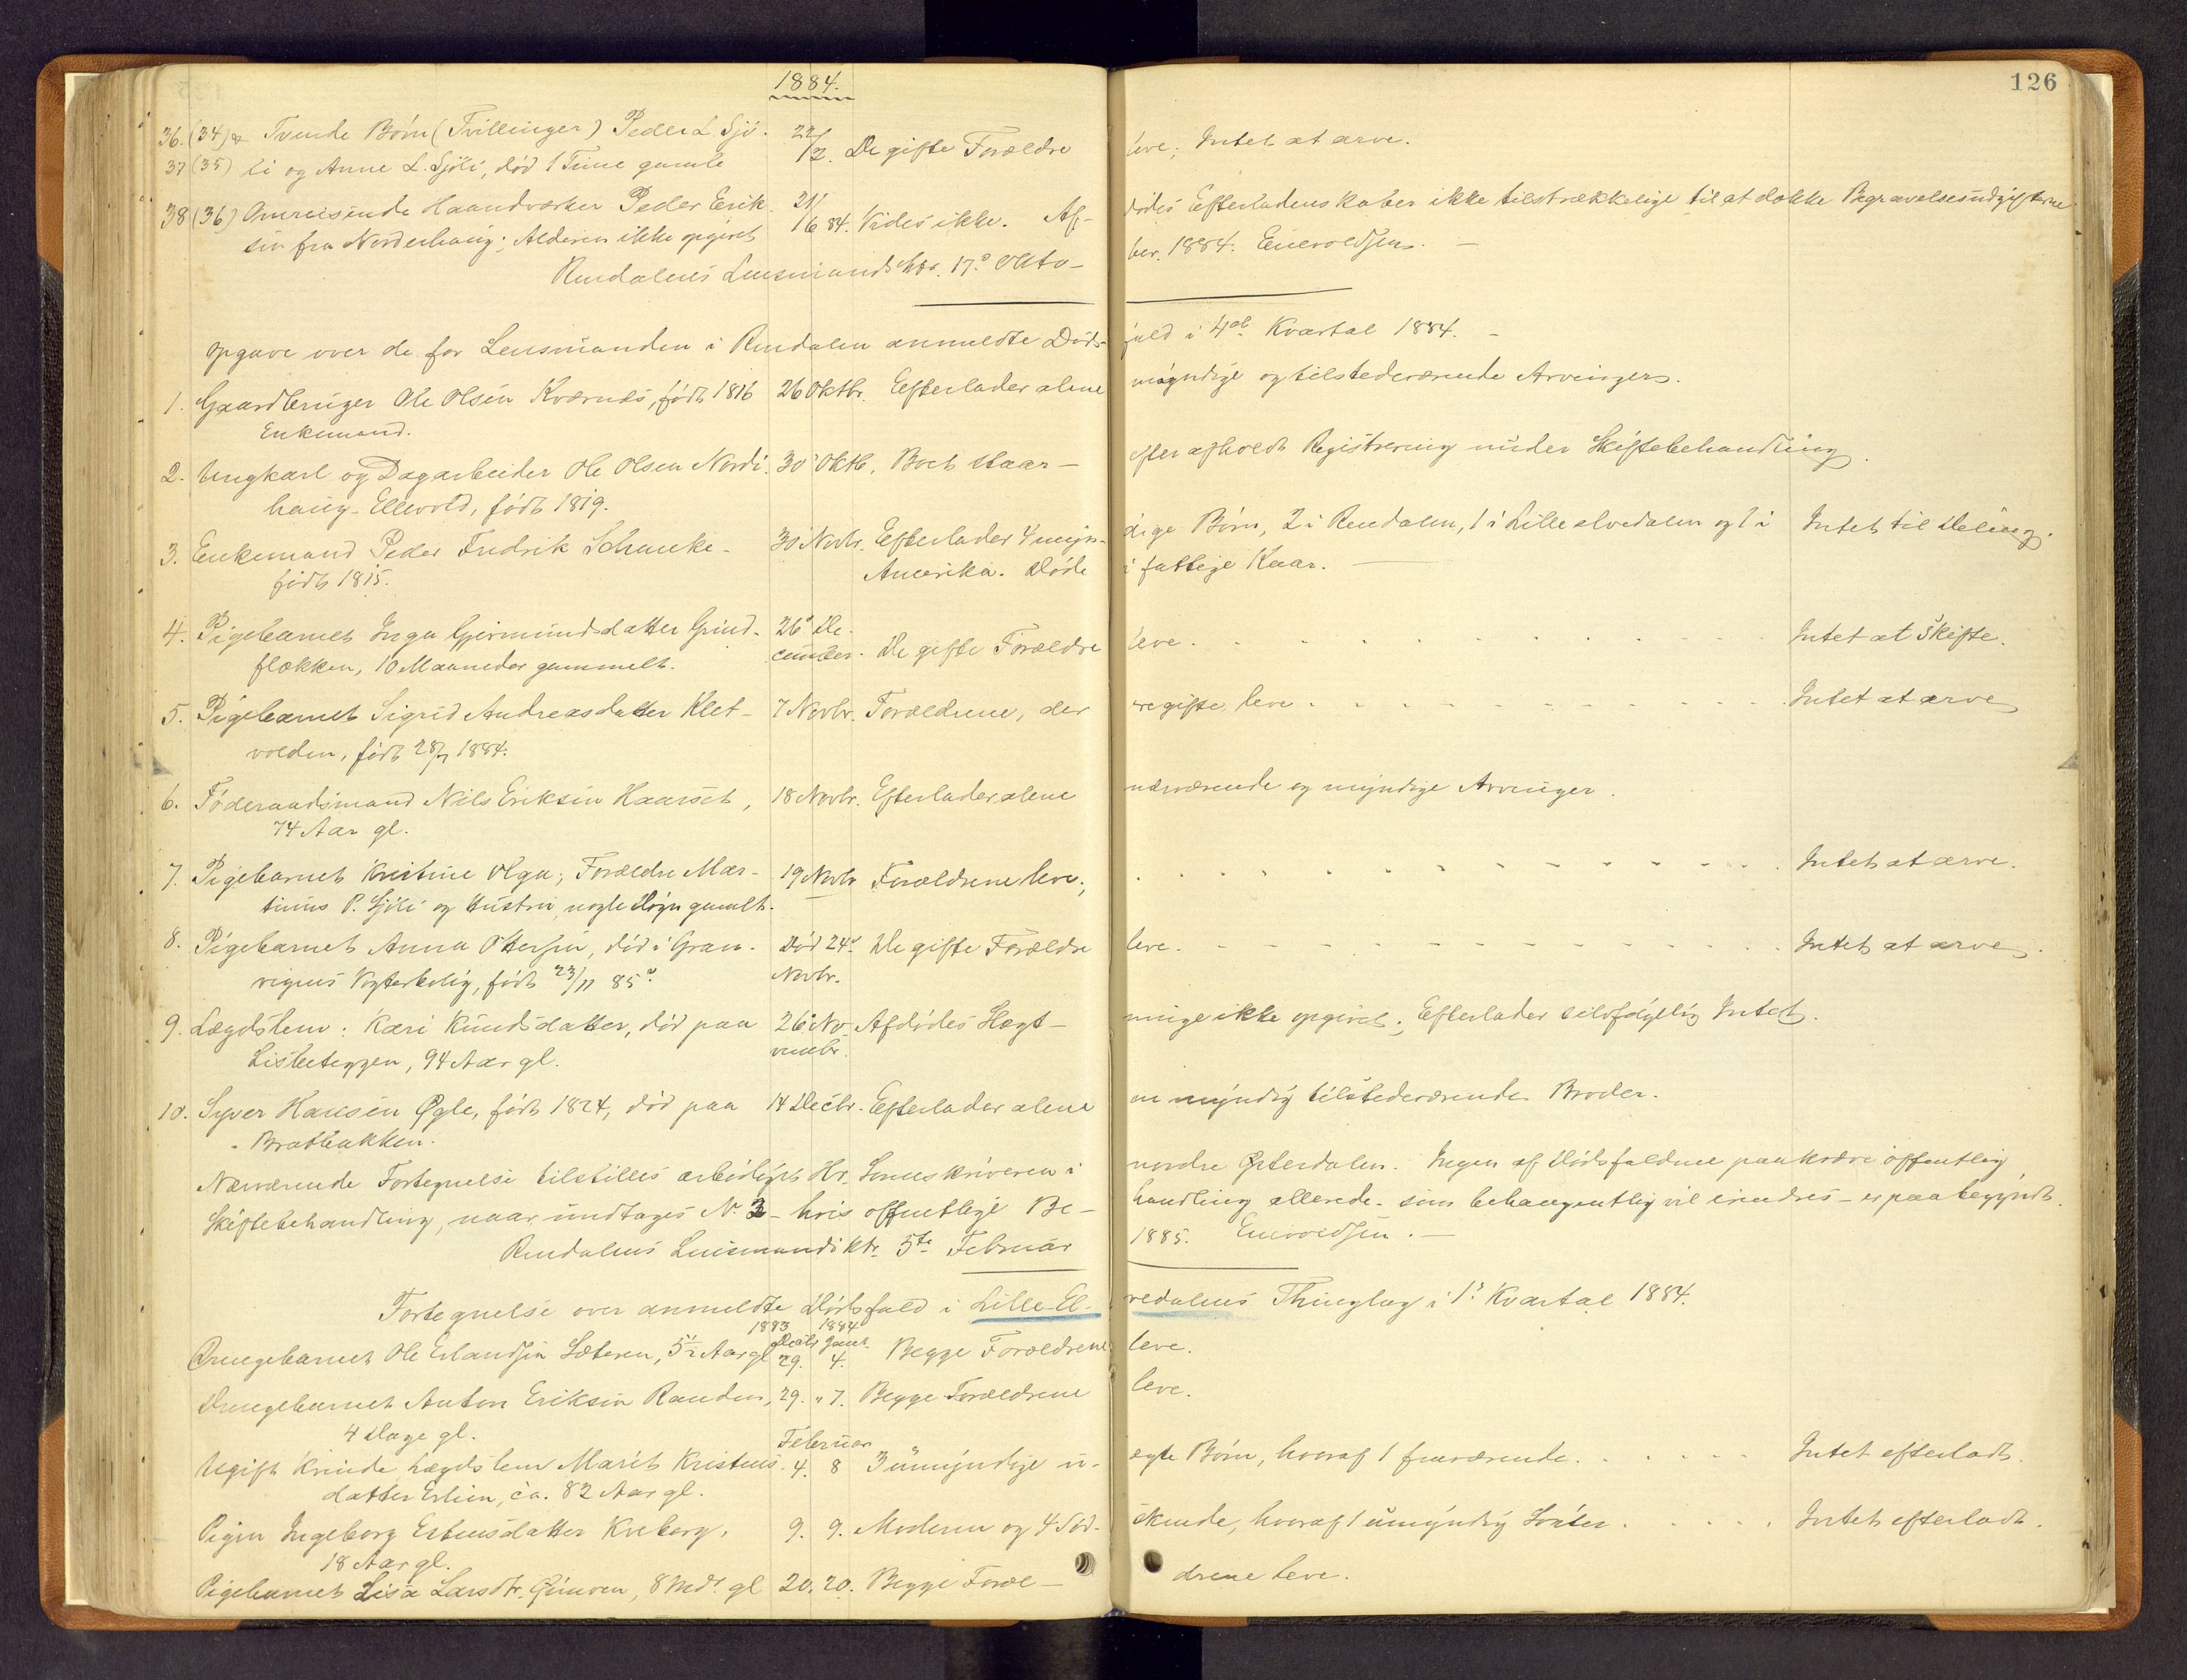 1884.
126
36. (34) & Tvende Børn (Tvillinger) Peder L. Sjø- 22/2. De gifte Forældre leve; Intet at arve.
37 (35) li og Anne L. Sjøli, død 1 Time gamle
38 (36) Omreisende Haandværker Peder Erik- 21/6 84. Vides ikke. Af- dødes Efterladenskaber ikke tilstrækkelige til at dække Begravelsesudgifterne
sen fra Norderhaug; Alderen ikke opgivet
Rendalens Lensmandsktr. 17de Okto- ber. 1884. Enevoldsen. —
Opgave over de for Lensmanden i Rendalen anmeldte Døds- fald i 4de Kvartal 1884. —
1. Gaardbruger Ole Olsen Kværnæs, født 1816 26 Oktbr. Efterlader alene myndige og tilstedeværende Arvinger.
Enkemand.
2. Ungkarl og Dagarbeider Ole Olsen Nordi- 30 Oktb. Boet staar — efter afholdt Registrering under Skiftebehandling.
haug-Ellevold, født 1819.
3. Enkemand Peder Fredrik Schancke - 30 Novbr. Efterlader 4 myn- dige Børn, 2 i Rendalen, 1 i Lille elvedalen og 1 i Intet til Deling.
født 1815. Amerika. Døde i fattige Kaar. —
4. Pigebarnet Inga Gjermundsdatter Grind- 26de De-
flækken, 10 Maaneder gammelt. cember. De gifte Forældre leve. Intet at skifte.
5. Pigebarnet Sigrid Andreasdatter Klet- 7 Novbr. Forældrene, der ere gifte, leve. Intet at arve
volden, født 28/7 1884.
6. Føderaadsmand Nils Eriksen Haarset, 18 Novbr. Efterlader alene nærværende og myndige Arvinger.
74 Aar gl.
7. Pigebarnet Kristine Olga; Forældre Mar- 19 Novbr Forældrene leve; Intet at arve.
tinus P. Sjøli og Hustru, nogle Døgn gamlt.
8. Pigebarnet Anna Ottersen, død i Gran- Død 24de De gifte Forældre leve. Intet at arve.
vigens Vogterbolig, født 23/11 85. Novbr.
9. Lægdslem: Kari Knudsdatter, død paa 26 No- Afdødes Slægt- ninge ikke opgivet; Efterlader selvfølgelig Intet.
Lisbeteggen, 94 Aar gl. vember.
10. Syver Hansen Øgle, født 1824, død paa 14 Decbr. Efterlader alene en myndig tilstedeværende Broder.
Bratbakken.
Nærværende Fortegnelse tilstilles ærbødigst Hr. Sorenskriveren i nordre Østerdalen. Ingen af Dødsfaldene paakræve offentlig
Skiftebehandling, naar undtages No. 2 - hvis offentlige Be- handling allerede - som behageligtlig vil erindres - er paabegyndt.
Rendalens Lensmandsktr. 5te Februar 1885. Enevoldsen. —
Fortegnelse over anmeldte Dødsfald i Lille-El- vedalens Thinglag i 1ste Kvartal 1884.
1883 1884
Decbr Janr.
Drengebarnet Ole Erlandsen Sæteren, 5½ Aar gl 29. 4. Begge Forældrene leve.
Drengebarnet Anton Eriksen Randen, 29. " 7. Begge Forældrene leve.
4 Dage gl.
Februar
Ugift Kvinde Lægdslem Marit Kristens- 4. 8 3 umyndige u- ægte Børn, hvoraf 1 fraværende. Intet efterladt.
datter Erlien, ca. 82 Aar gl.
Pigen Ingeborg Estensdatter Kveberg, 9. 9. Moderen og 4 Sød- skende, hvoraf 1 umyndig Søster. Intet efterladt.
18 Aar gl.
Pigebarnet Lisa Larsdtr. 8 Mdr. gl 20. 20. Begge Foræl- drene leve.